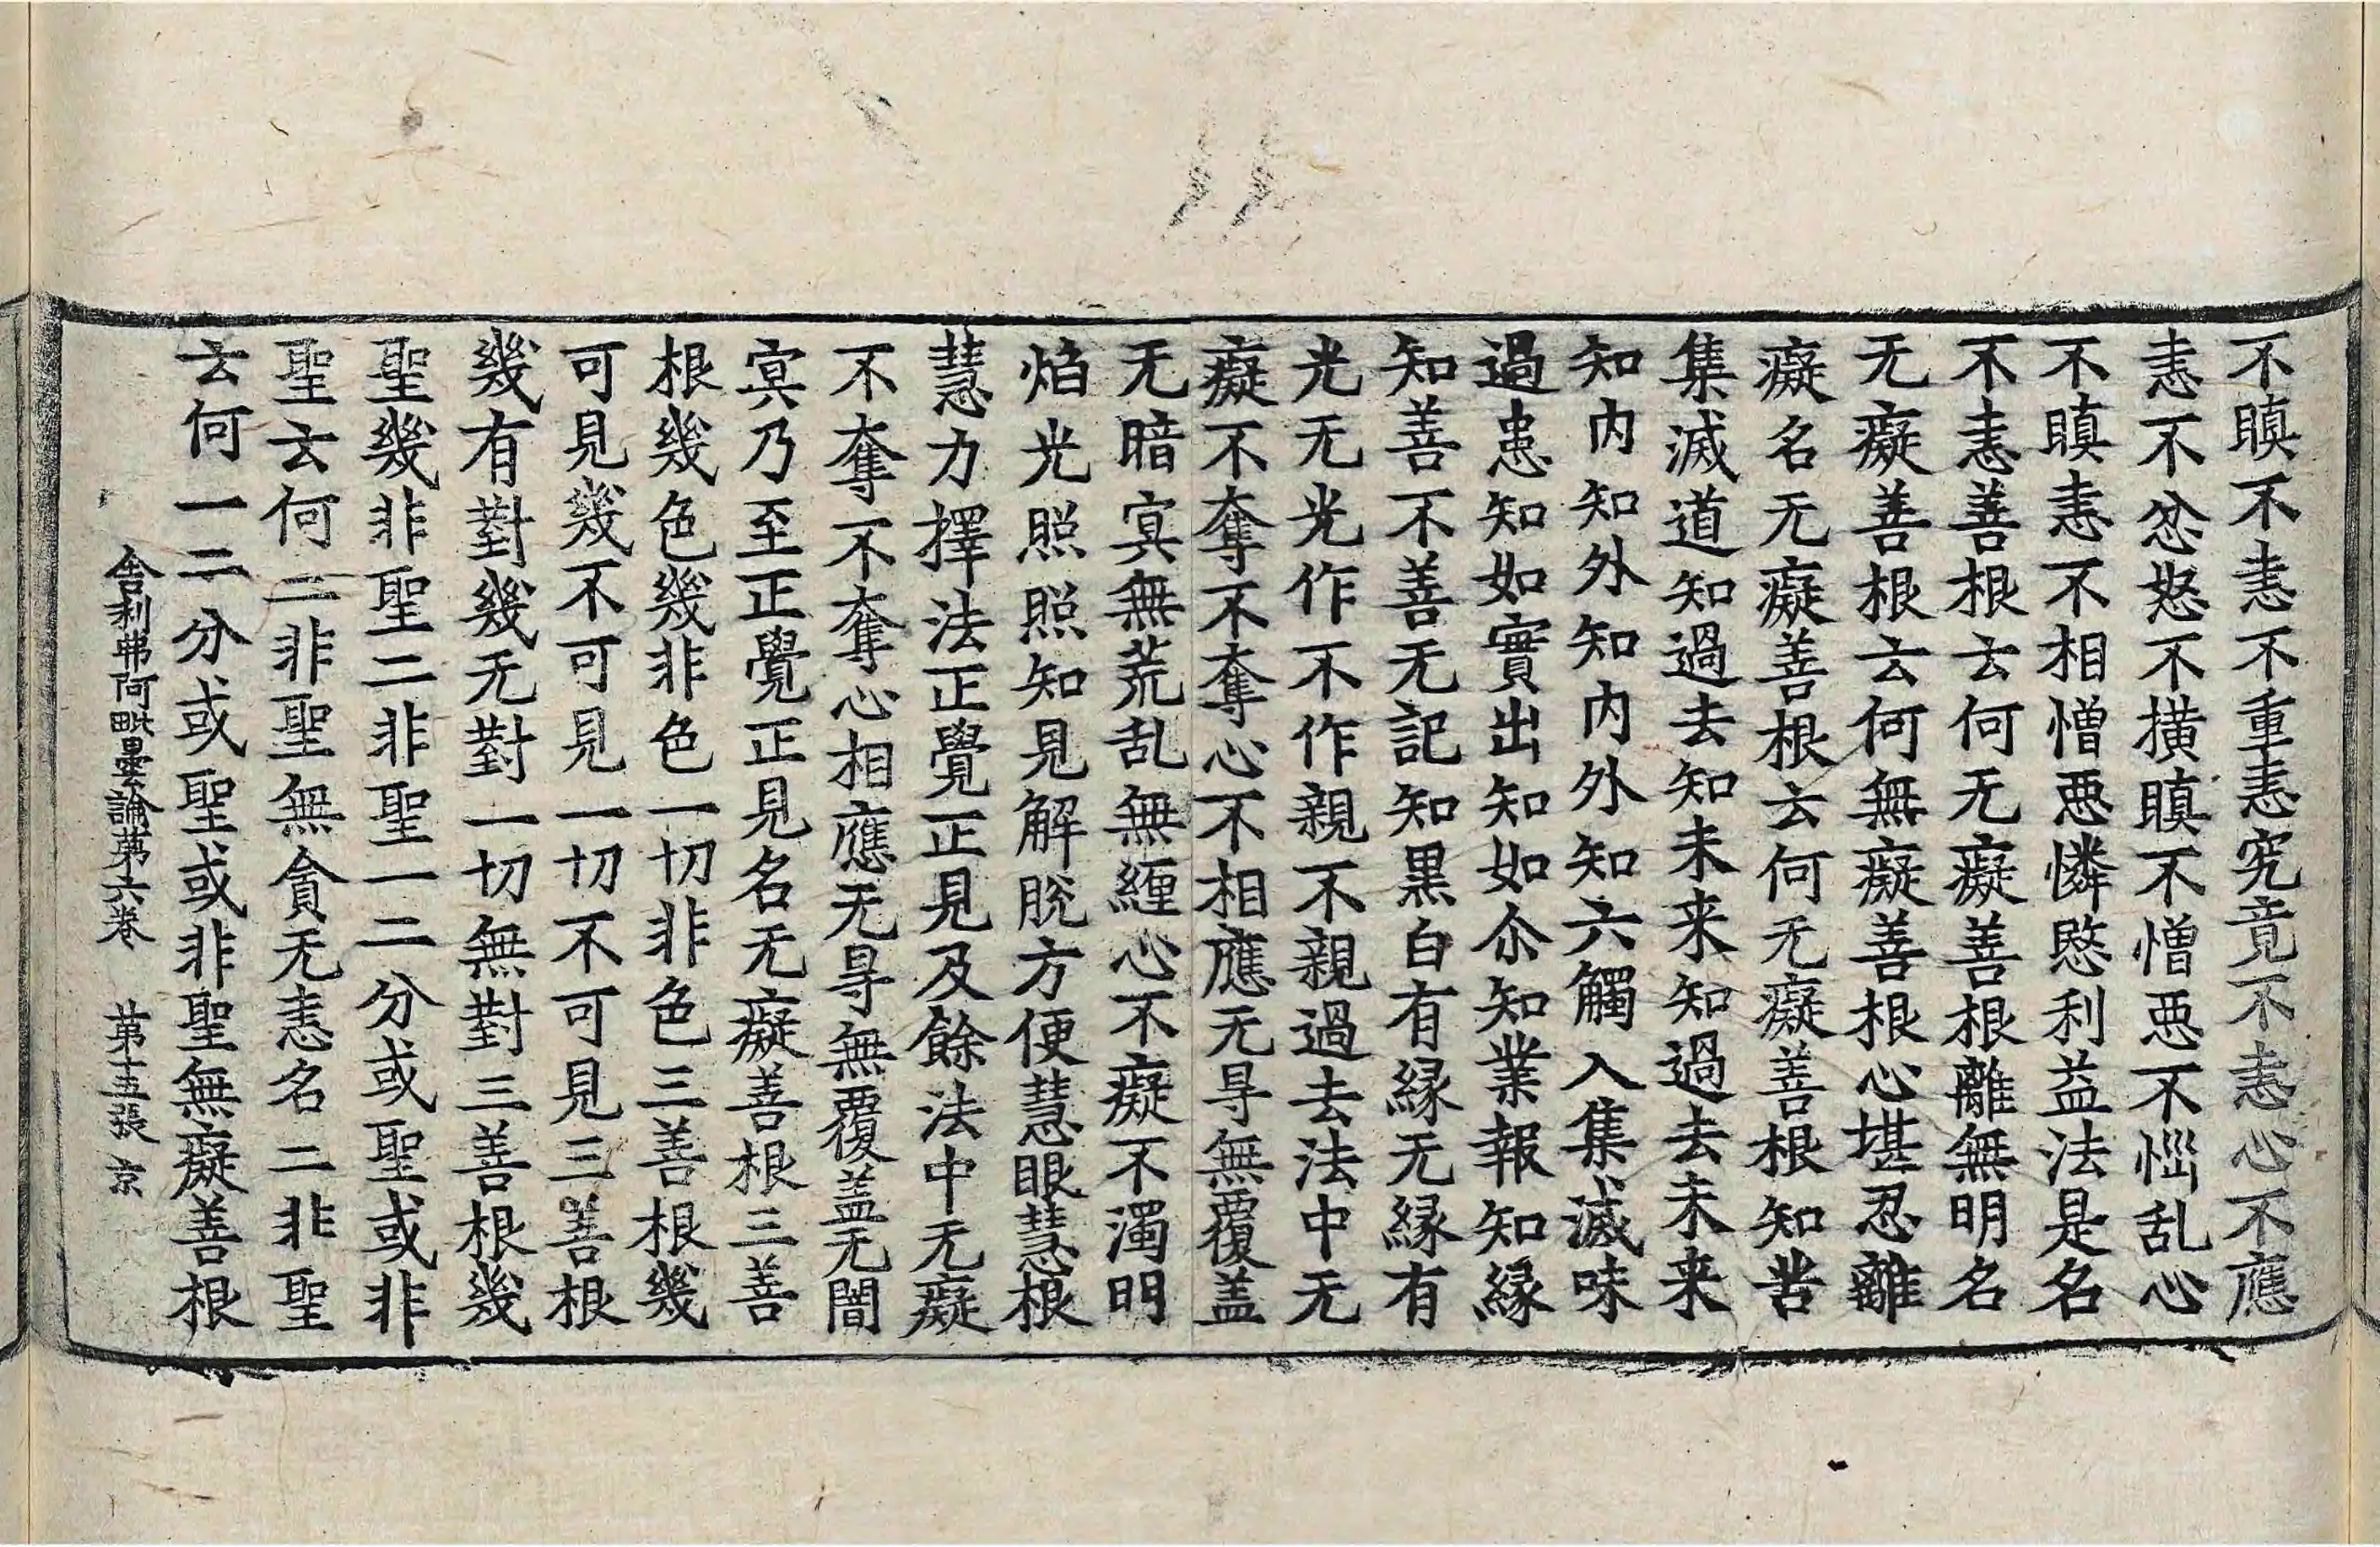 不瞋不恚不重恚究竟不恚心不應
恚不忿怒不横瞋不憎惡不惱乱心
不瞋恚不相憎惡憐愍利益法是名
不恚善根云何无癡善根離無明名
无癡善根云何無癡善根心堪忍離
癡名无癡善根云何无癡善根知苦
集滅道知過去知未来知過去未来
知内知外知内外知六觸入集滅味
過患知如實出知如尒知業報知緣
知善不善无記知黒白有緣无緣有
光无光作不作親不親過去法中无
癡不奪不奪心不相應无㝵無覆盖
无暗冥無荒乱無纒心不癡不濁明
焰光照照知見解脱方便慧眼慧根
慧力擇法正覺正見及餘法中无癡
不奪不奪心相應无㝵無覆盖无闇
冥乃至正覺正見名无癡善根三善
根幾色幾非色一切非色三善根幾
可見幾不可見一切不可見三善根
幾有對幾无對一切無對三善根幾
聖幾非聖二非聖一二分或聖或非
聖云何二非聖無貪无恚名二非聖
云何一二分或聖或非聖無癡善根
舍利弗阿毗曇論第六卷 第十五張 京